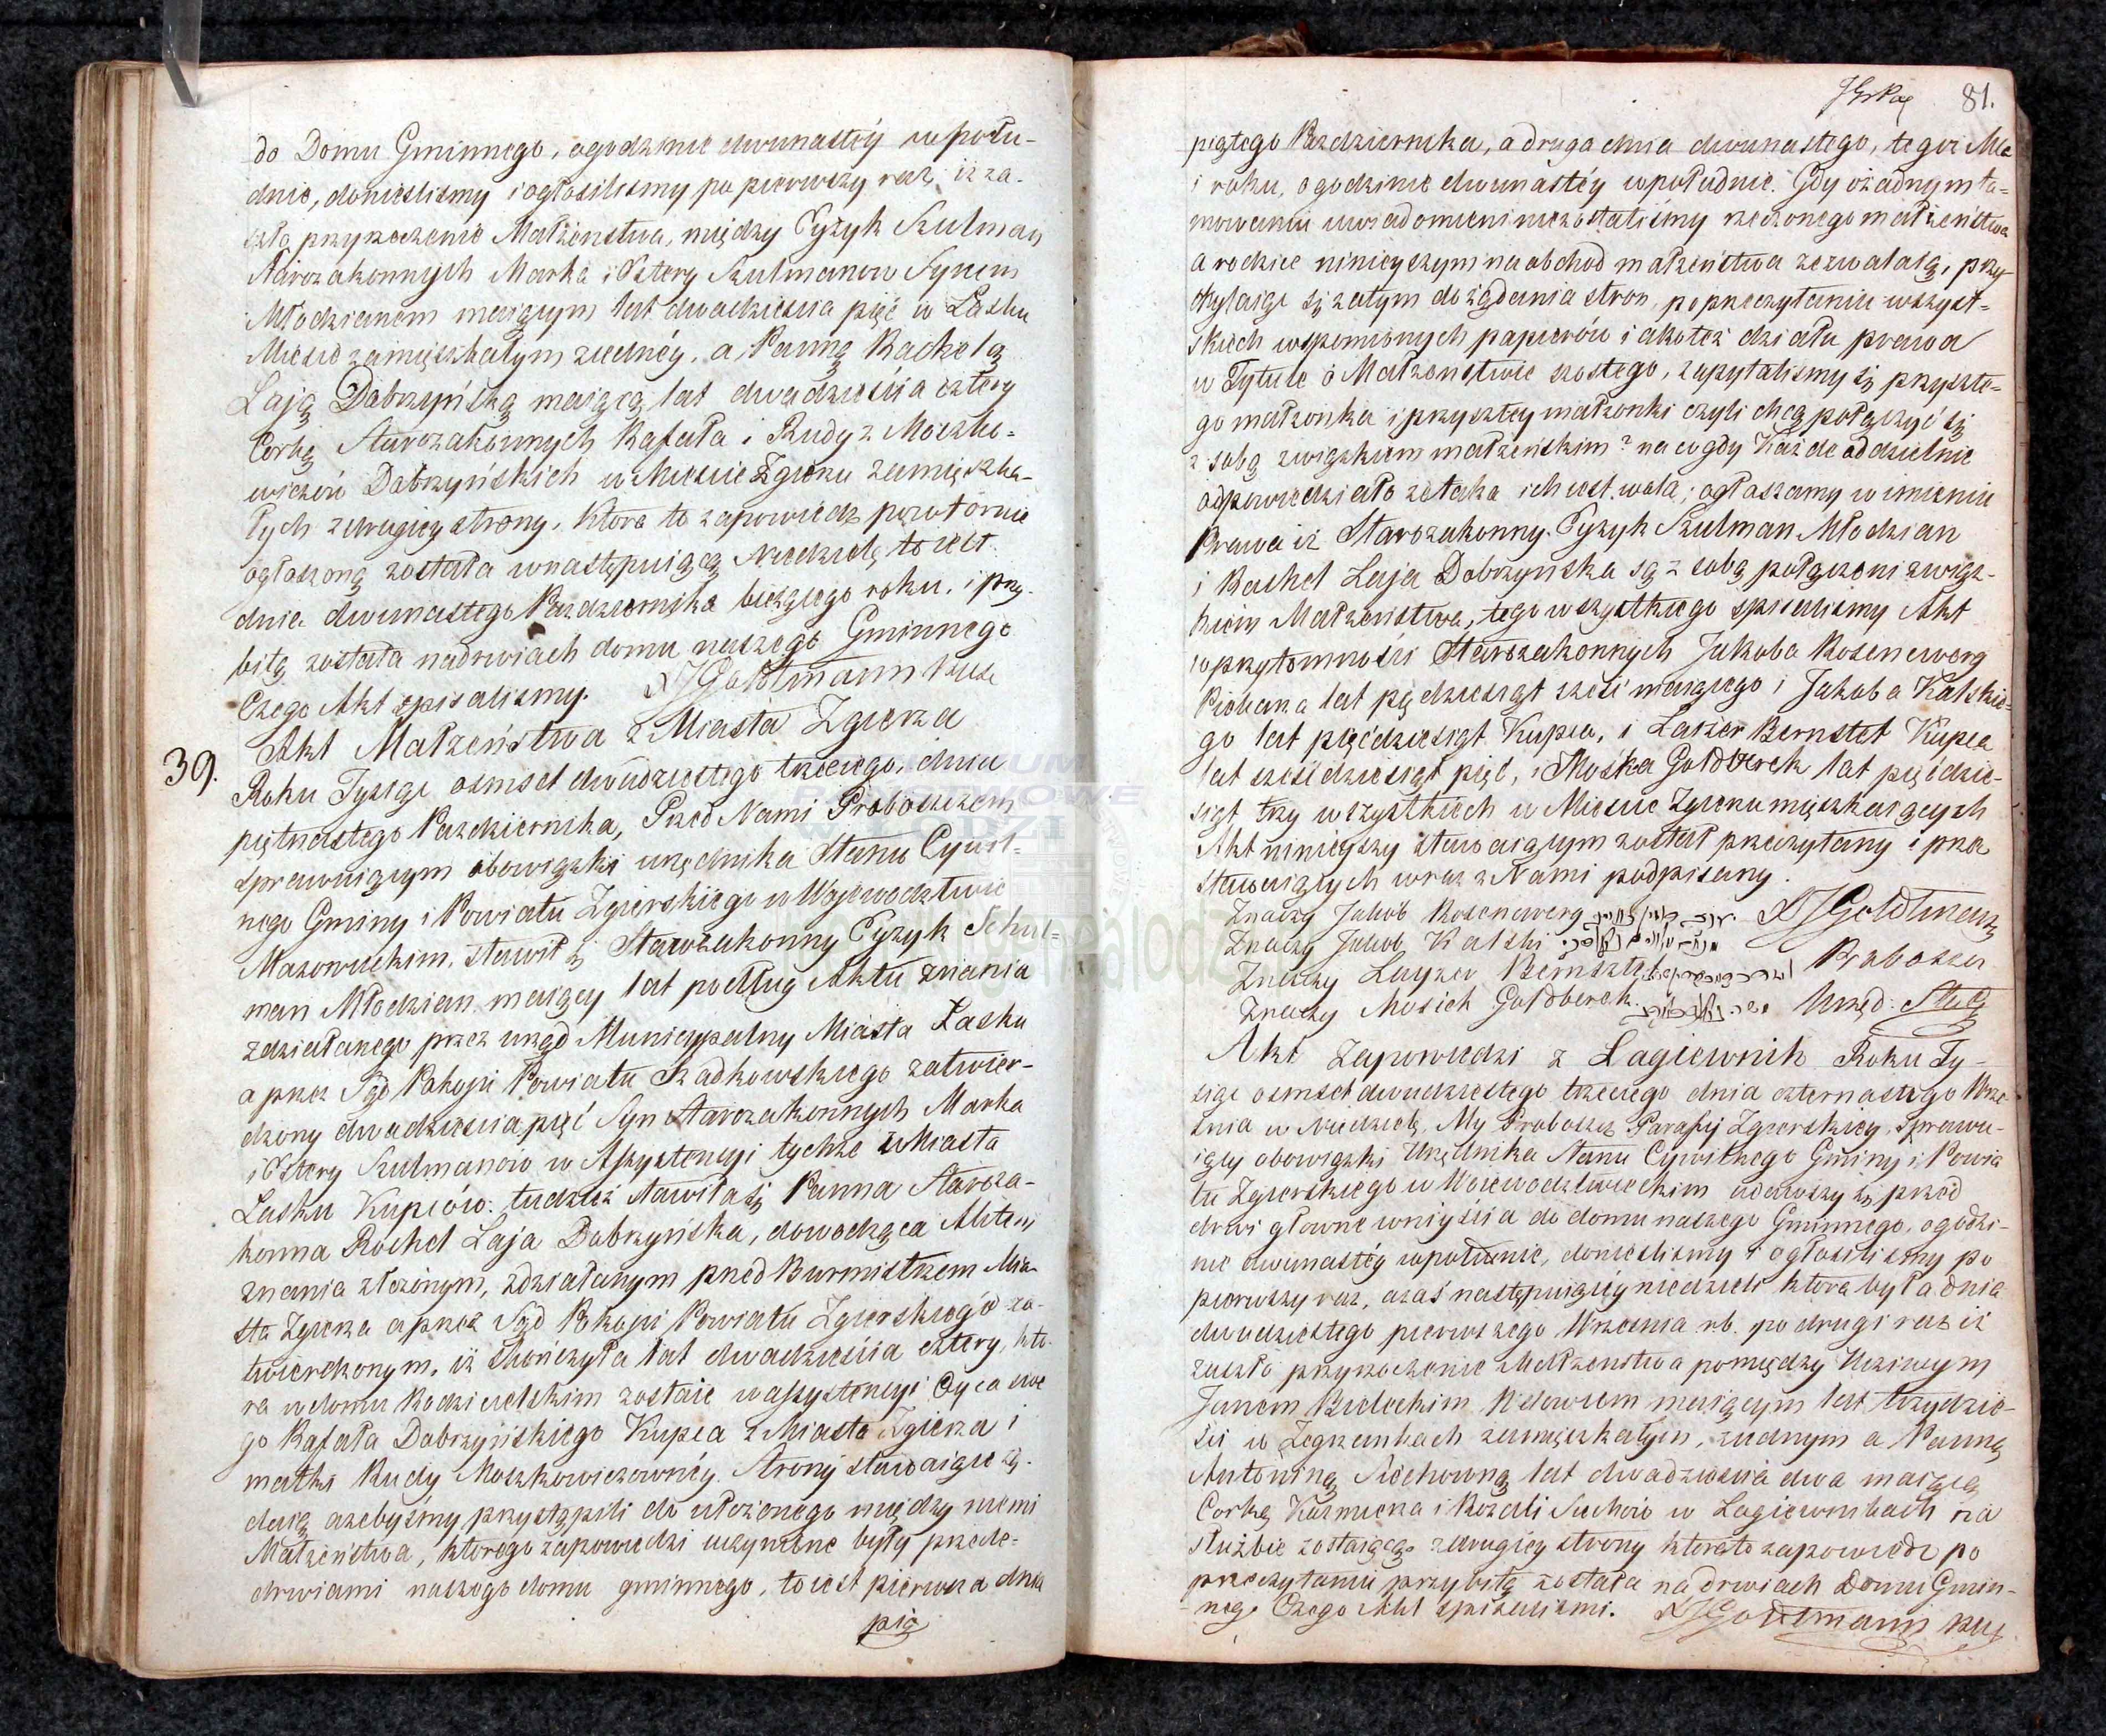 do Domu Gminnego, o godzinie dwunastéy w połu-
dnie, donieslismy i ogłosilismy po pierwszy raz, iż za-
szło przyrzeczenie Małżenstwa, między Eyzyk Szulman
Starozakonnych Marka i Estery Szulmanow Synem
Młodzianem maiącym lat dwadziescia pięć w Lasku
Miescie zamięszkałym z iednéy, a Panną Rachelą
Lają Dobrzyńską maiącą lat dwadzieścia cztery
Corką Starozakonnych Rafała i Rudy z Moszko-
wiczów Dobrzyńskich w Miescie Zgierzu zamięszka-
łych z drugiey strony. Ktora to zapowiedz powtornie
ogłoszoną została w następuiącą Niedzielę to iest
dnia dwunastego Pazdziernika bieżącego roku, i przy-
bitą została na drzwiach domu naszego Gminnego
Czego Akt spisalismy. Goldtmann
39. Akt Małżeństwa z Miasta Zgierza
Roku Tysiąc osmset dwudziestego trzeciego, dnia
piętnastego Pazdziernika, Przed Nami Proboszczem
sprawuiącym obowiązki urzędnika Stanu Cywil-
nego Gminy i Powiatu Zgierskiego w Woiewodztwie
Mazowieckim, stawił się Starozakonny Eyzyk Schul-
man Młodzian maiący lat podług Aktu znania
zdziałanego przez urząd Municypalny Miasta Łasku
a przez Sąd Pokoju Powiatu Szadkowskiego zatwier-
dzony dwadziescia pięć Syn Starozakonnych Marka
i Estery Szulmanow w Assystencyi tychże z Miasta
Lasku Kupców: tudzież stawiła się Panna Staroza-
konna Rochel Laja Dobrzyńska, dowodząca Aktem
znania złożonym, zdziałanym przed Burmistrzem Mia-
sta Zgierza a przez Sąd Pokoju Powiatu Zgierskiego za-
twierdzonym, iż skończyła lat dwadzieścia cztery, kto-
ra w domu Rodzicielskim zostaie w assystencyi Oyca swe
go Rafała Dobrzyńskiego Kupca z Miasta Zgierza i
matki Rudy Moszkowiczownéy. Strony stawaiące żą-
daią azebyśmy przystąpili do ułożonego między niemi
Małżeństwa, ktorego zapowiedzi uczynione były przede-
drzwiami naszego domu gminnego, to iest pierwsza dnia
pią
81.
piątego Pazdziernika, a druga dnia dwunastego, tegoż Mca
i roku, o godzinie dwunastéy w południe. Gdy o żadnym ta-
mowaniu uwiadomieni niezostaliśmy rzeczonego małżeństwa
a rodzice ninieyszym na obchod małżeństwa zezwalaią, przy-
chylaiąc się zatym do żądania stron, po przeczytaniu wszyst-
skich wspomionych papierów i akoteż działu prawa
w Tytule o Małżenstwie szostego, zapytalismy się przyszłe-
go małżonka i przyszłey małżonki czyli chcą połączyć się
z sobą związkiem małżeńskim? na co gdy Każde oddzielnie
odpowiedziało że taka ich iest wola; ogłaszamy w imieniu
Prawa iż Starozakonny Eyzyk Szulman Młodzian
i Rachel Laja Dobrzyńska są z sobą połączeni związ-
kiem Małżeństwa, tego wszystkiego spisalismy Akt
w przytomności Starozakonnych Jakoba Rosenewerg
Piekarza lat pędziesiąt sześć maiącego i Jakoba Kalskie-
go lat pięćdziesiąt Kupca, i Laizer Bernstet Kupca
lat sześćdziesiąt pięć, i Moska Goldberck lat pięćdzie-
siąt trzy wszystkich w Miescie Zgierzu mięszkaiących
Akt ninieyszy stawaiącym został przeczytany i prze
stawaiących wraz z Nami podpisany.
Znaczy Jakób Rosenewerg Goldtmann
Znaczy Jakob Kalski
Znaczy Layzer Bernsztet Proboszcz
Znaczy Mosiek Goldberck. Urzęd: Stu C
Akt Zapowiedzi z Lagiewnik Roku Ty-
siąc osmset dwudziestego trzeciego dnia czternastego Wrze
snia w Niedzielę, My Proboszcz Parafij Zgierskiey, sprawu-
iący obowiązki Urzędnika Stanu Cywilnego Gminy i Powia
tu Zgierskiego w Woiewodztwie udawszy się przed
drzwi głowne wniyscia do domu naszego Gminnego, o godzi-
nie dwunastéy w południe, donieslismy i ogłosilismy po
pierwszy raz, a zaś następuiącéy niedzieli ktora była dnia
dwudziestego pierwszego Wrzesnia r.b. po drugi raz iż
zaszło przyrzeczenie Małżenstwa pomiędzy Uczciwym
Janem Bieleckim Wdowcem maiącym lat trzydzie-
ści w zamieszkałym, z iednym a Panną
Antoniną lat dwadziescia dwa maiącą
Corką Kazmierza i Rozali w Lagiewnikach na
służbie zostaiącą z drugiéy strony ktorato zapowiedz po
przeczytaniu przybitą została na drzwiach Domu Gmin-
nego Czego Akt spisalismi. Goldtmann